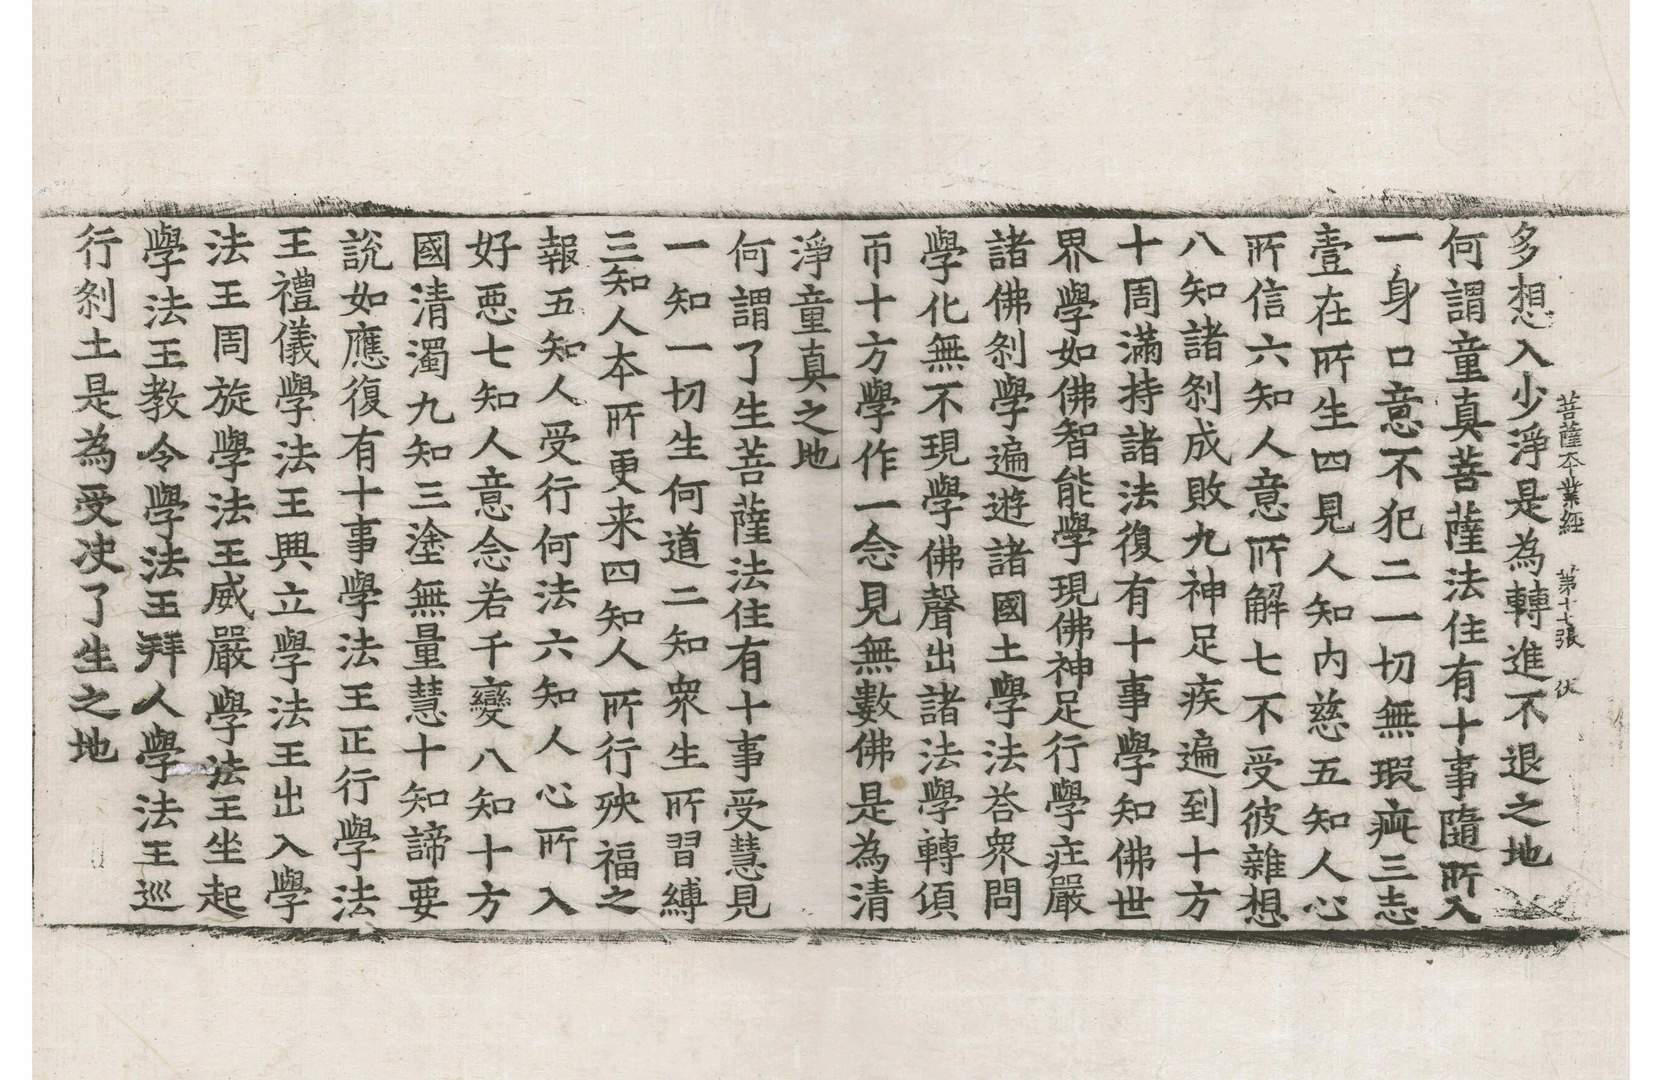 菩薩本業經 第十七張 伏
多想入少淨是為轉進不退之地
何謂童真菩薩法住有十事隨所入
一身口意不犯二一切無瑕疵三志
壹在所生四見人知內慈五知人心
所信六知人意所解七不受彼雜想
八知諸剎成敗九神足疾遍到十方
十周滿持諸法復有十事學知佛世
界學如佛智能學現佛神足行學莊嚴
諸佛剎學遍遊諸國土學法荅衆問
學化無不現學佛聲出諸法學轉頃
帀十方學作一念見無數佛是為清
淨童真之地
何謂了生菩薩法住有十事受慧見
一知一切生何道二知衆生所習縛
三知人本所更来四知人所行殃福之
報五知人受行何法六知人心所入
好惡七知人意念若千變八知十方
國清濁九知三塗無量慧十知諦要
說如應復有十事學法王正行學法
王禮儀學法王興立學法王出入學
法王周旋學法王威嚴學法王坐起
學法王教令學法王拜人學法王巡
行剎土是為受决了生之地